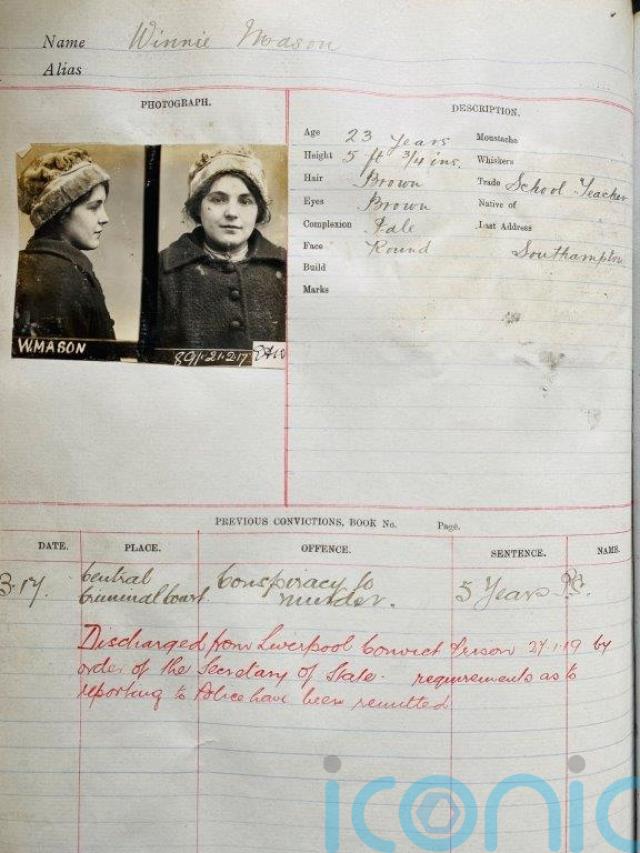 Name Winnie Mason
Alias
PHOTOGRAPH.
DESCRIPTION.
Age 23 years
Height 5 ft 3/4 ins.
Hair Brown
Eyes Brown
Complexion Pale
Face Round
Build
Marks
Moustache
Whiskers
Trade School Teacher
Native of
Last Address
Southampton
W.MASON
891·21·2·17
PREVIOUS CONVICTIONS, BOOK No. Page.
DATE. PLACE. OFFENCE. SENTENCE. NAME.
3.17. Central Conspiracy to 5 Years P.S.
Criminal Court murder.
Discharged from Liverpool Convict Prison 27·1·19 by
order of the Secretary of State. requirements as to
reporting to Police have been remitted
iconic